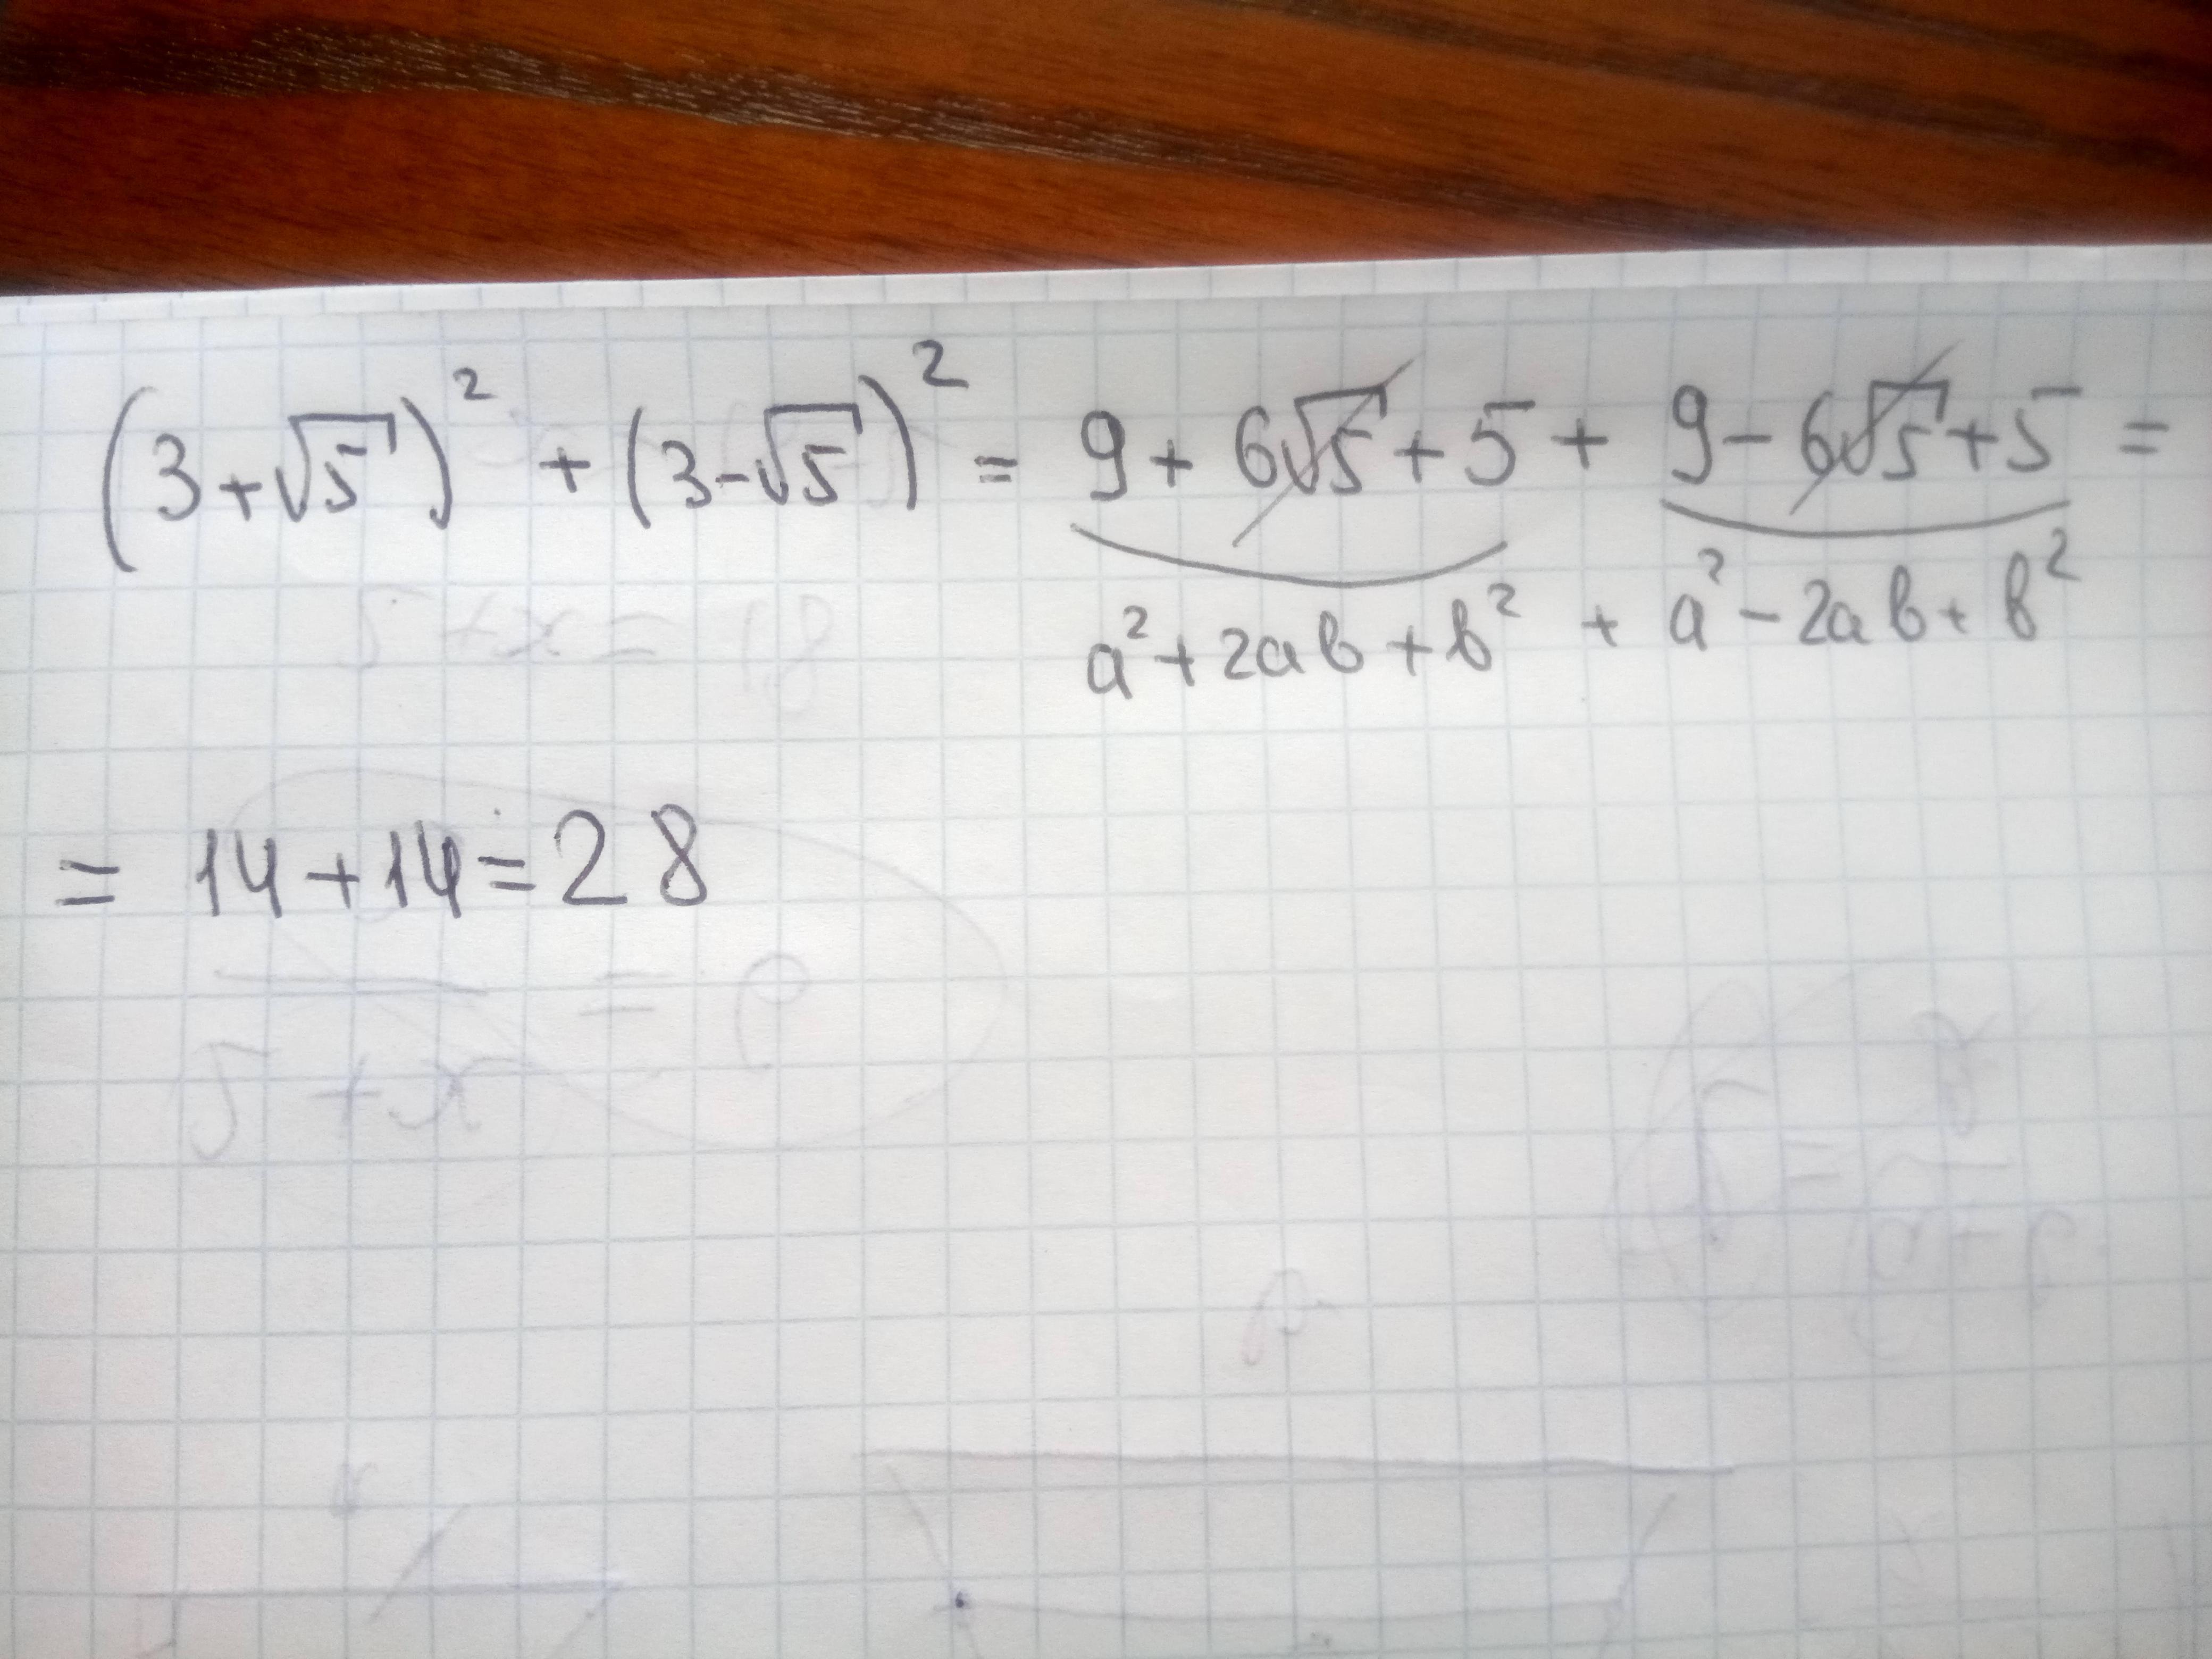 (3+√5)² + (3-√5)² = 9 + 6√5 + 5 + 9 - 6√5 + 5 =
a² + 2ab + b² + a² - 2ab + b²
= 14 + 14 = 28
5 + x = 18
= 9
5 + x